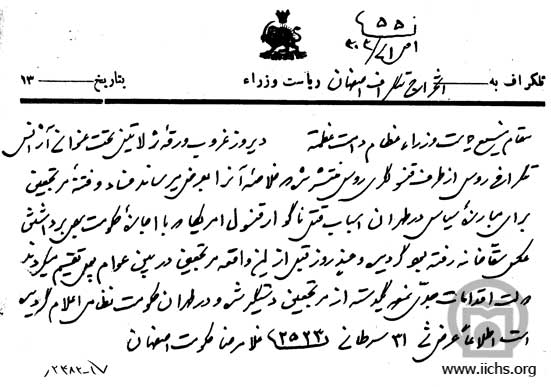 ۵۵
تلگراف به استخراج تلگراف اصفهان ریاست وزراء بتاریخ ۱۳
مقام منیع ریاست وزراء عظام دامت عظمته دیروز غروب ورقه ژلاتینی تحت عنوان آژانس
تلگرافی روس از طرف قنسولگری روس منتشر شده خلاصه آنرا بعرض میرساند فتنه مرتجعین
برای مبارزه سیاسی در طهران اسباب قتل ناگوار قنسول امریکا که با اجازه حکومت برای برداشتن
عکس سقاخانه رفته بود گردیده و چند روز قبل از این واقعه مرتجعین در بین عوام پول تقسیم میکردند
دولت اقدامات جدی نموده از مرتجعین دستگیر شده و در طهران حکومت نظامی اعلام گردیده
است اطلاعاً عرض شد ۳۱ سرطان (۲۵۲۳) غلامرضا حکومت اصفهان
www.iichs.org